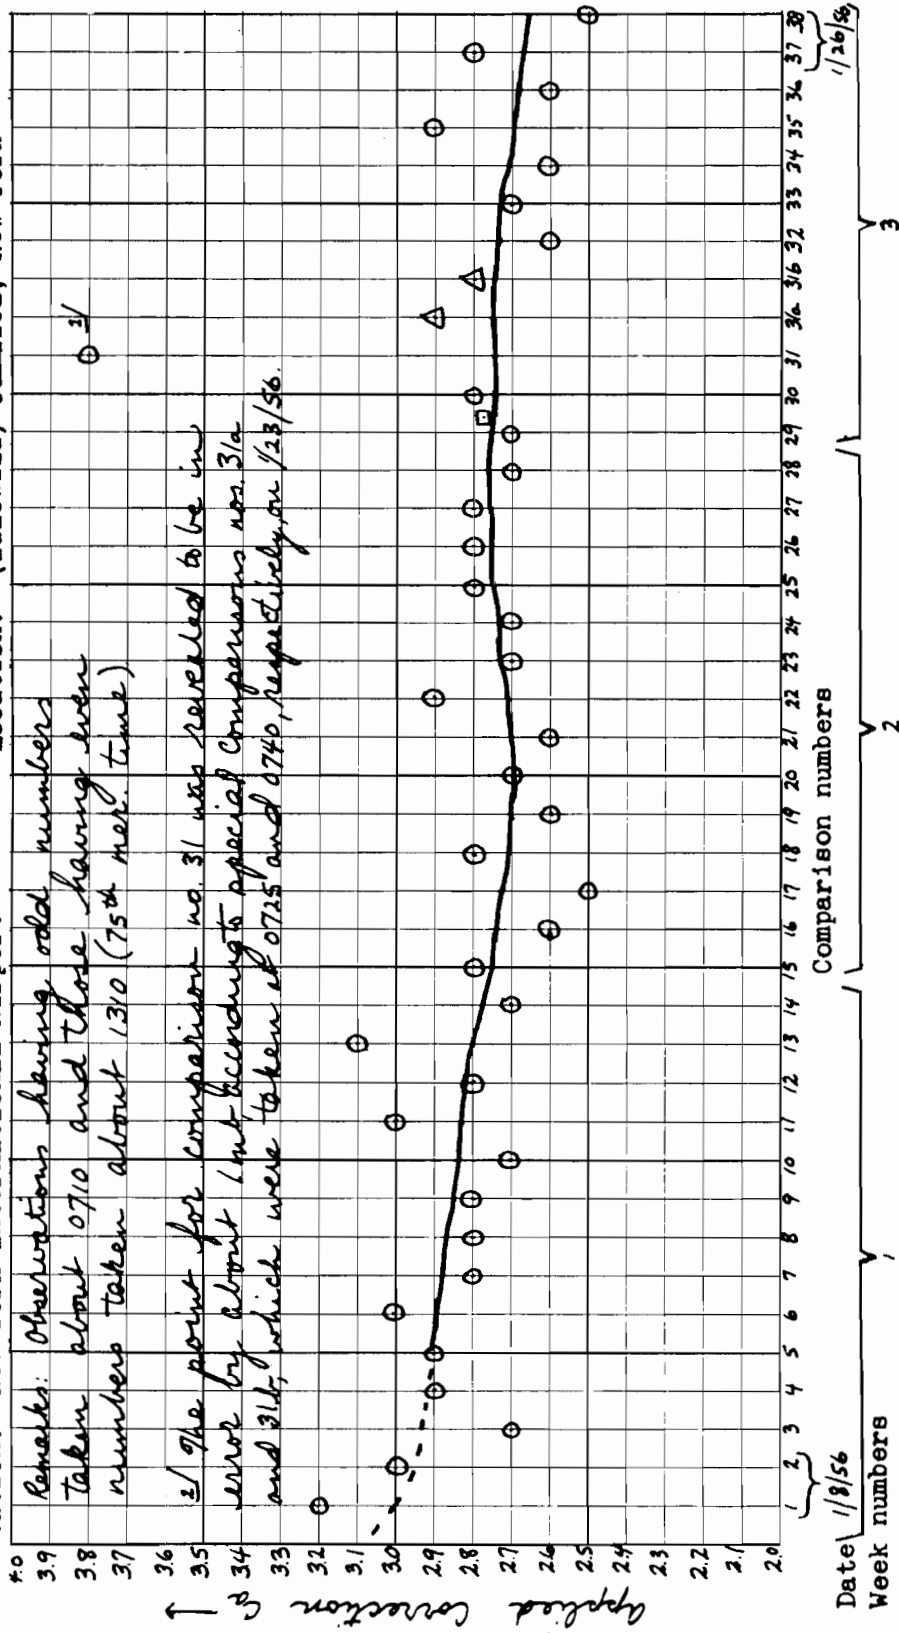 Remarks: Observations having odd numbers
taken about 0710 and those having even
numbers taken about 1310 (75th mer. time)
1/ The point for comparison no. 31 was revealed to be in
error by about 1 mb according to special comparisons nos. 31a
and 31b, which were taken at 0725 and 0740, respectively, on 1/23/56.
1/
Applied Correction Ca →
4.0
3.9
3.8
3.7
3.6
3.5
3.4
3.3
3.2
3.1
3.0
2.9
2.8
2.7
2.6
2.5
2.4
2.3
2.2
2.1
2.0
1 2 3 4 5 6 7 8 9 10 11 12 13 14 15 16 17 18 19 20 21 22 23 24 25 26 27 28 29 30 31 31a 31b 32 33 34 35 36 37 38
Date 1/8/56 1/26/56
Comparison numbers
Week numbers 1 2 3